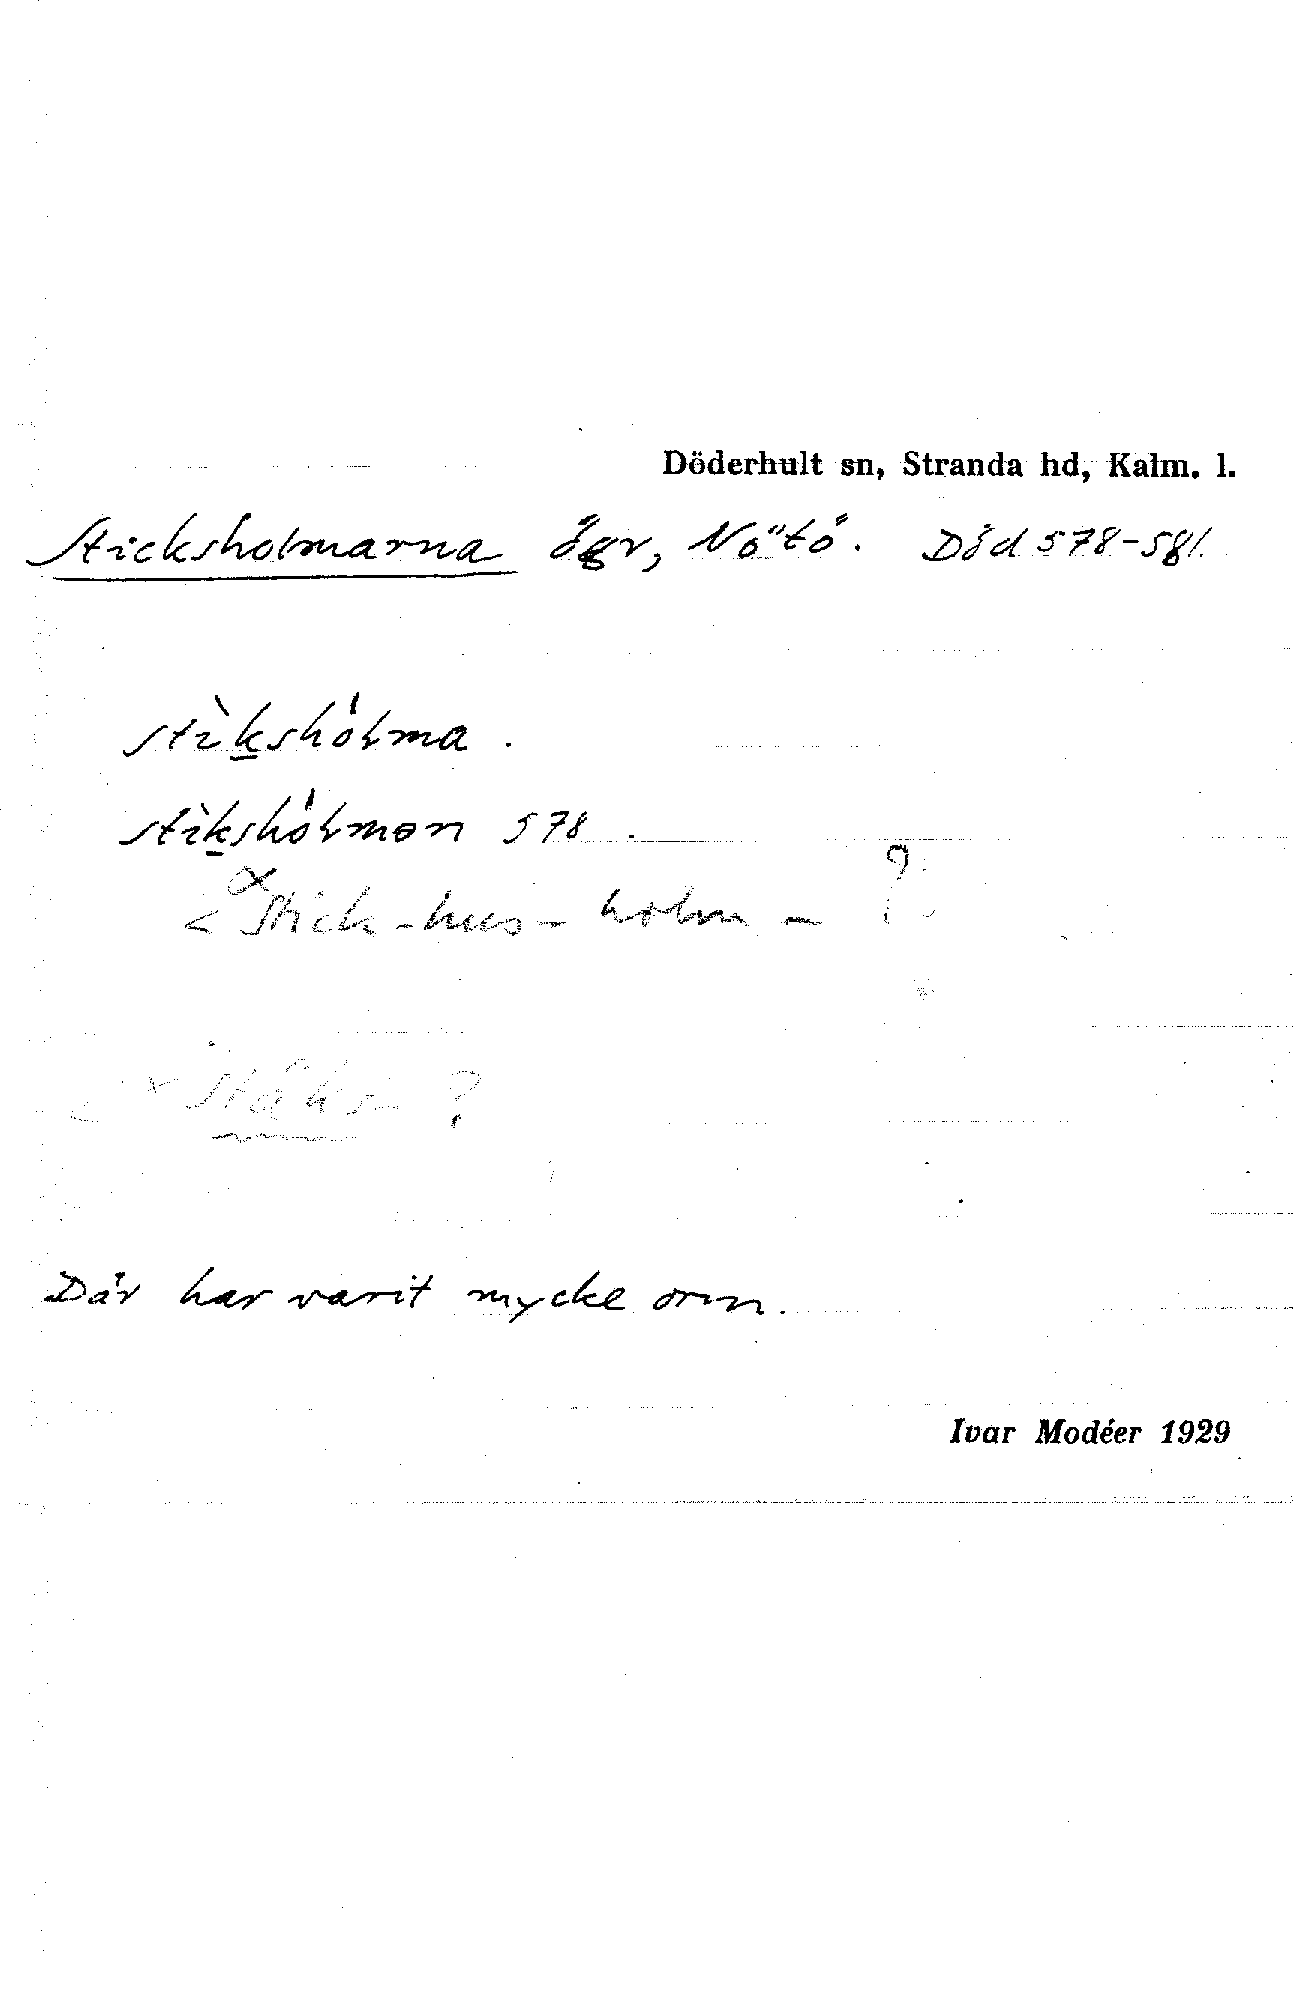 Döderhult sn, Stranda hd, Kalm. l.
Sticksholmarna ögr, Nötö. Död 578-581.
stìkshóLma.
stìkshóLmən 578.
< *Stick-hus-holm- ?
< *stäks- ?
Där har varit mycke orm.
Ivar Modéer 1929